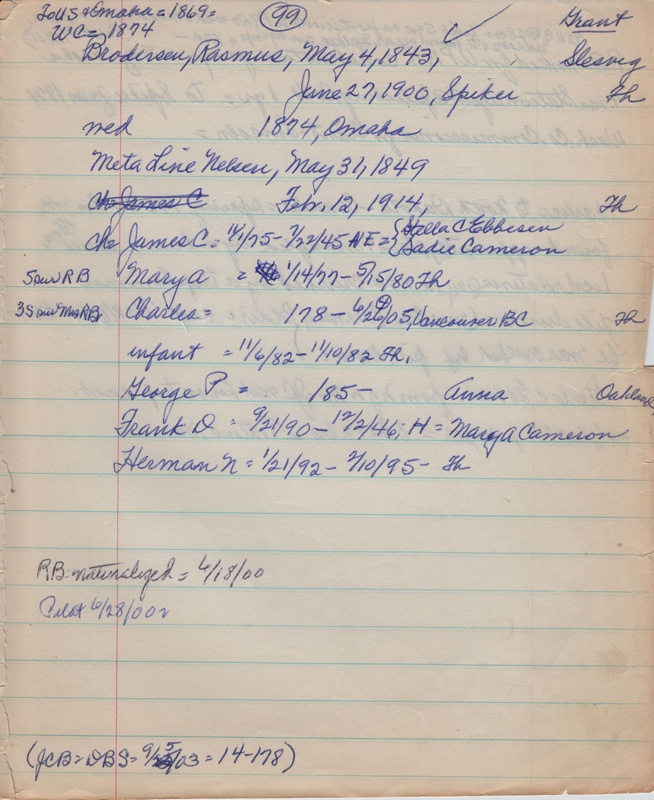 To US & Omaha = 1869 =
(99)
Grant
WC = 1874
Brodersen, Rasmus, May 4, 1843, Slesvig
June 27, 1900, Spiker Fh
wed 1874, Omaha
Meta Line Nelsen, May 31, 1849
ch= James C Feb. 12, 1914, Fh
ch= James C = 11/1/75 - 7/22/45 HE = { Stella C Ebbesen
Sadie Cameron
5 surv RB Mary A = 1/14/77 - 5/15/80 Fh
3 Surv Mrs RB Charles = 178 - 6/26/05, Vancouver BC Fh
infant = 11/6/82 - 11/10/82 Fh.
George P = /85 - Anna Oakland
Frank D = 9/21/90 - 12/2/46; H = Mary A Cameron
Herman N = 1/21/92 - 2/10/95 - Fh
R.B. naturalized = 6/18/00
Pilot 6/28/00
(JCB = DBS = 9/25/03 = 14-178)